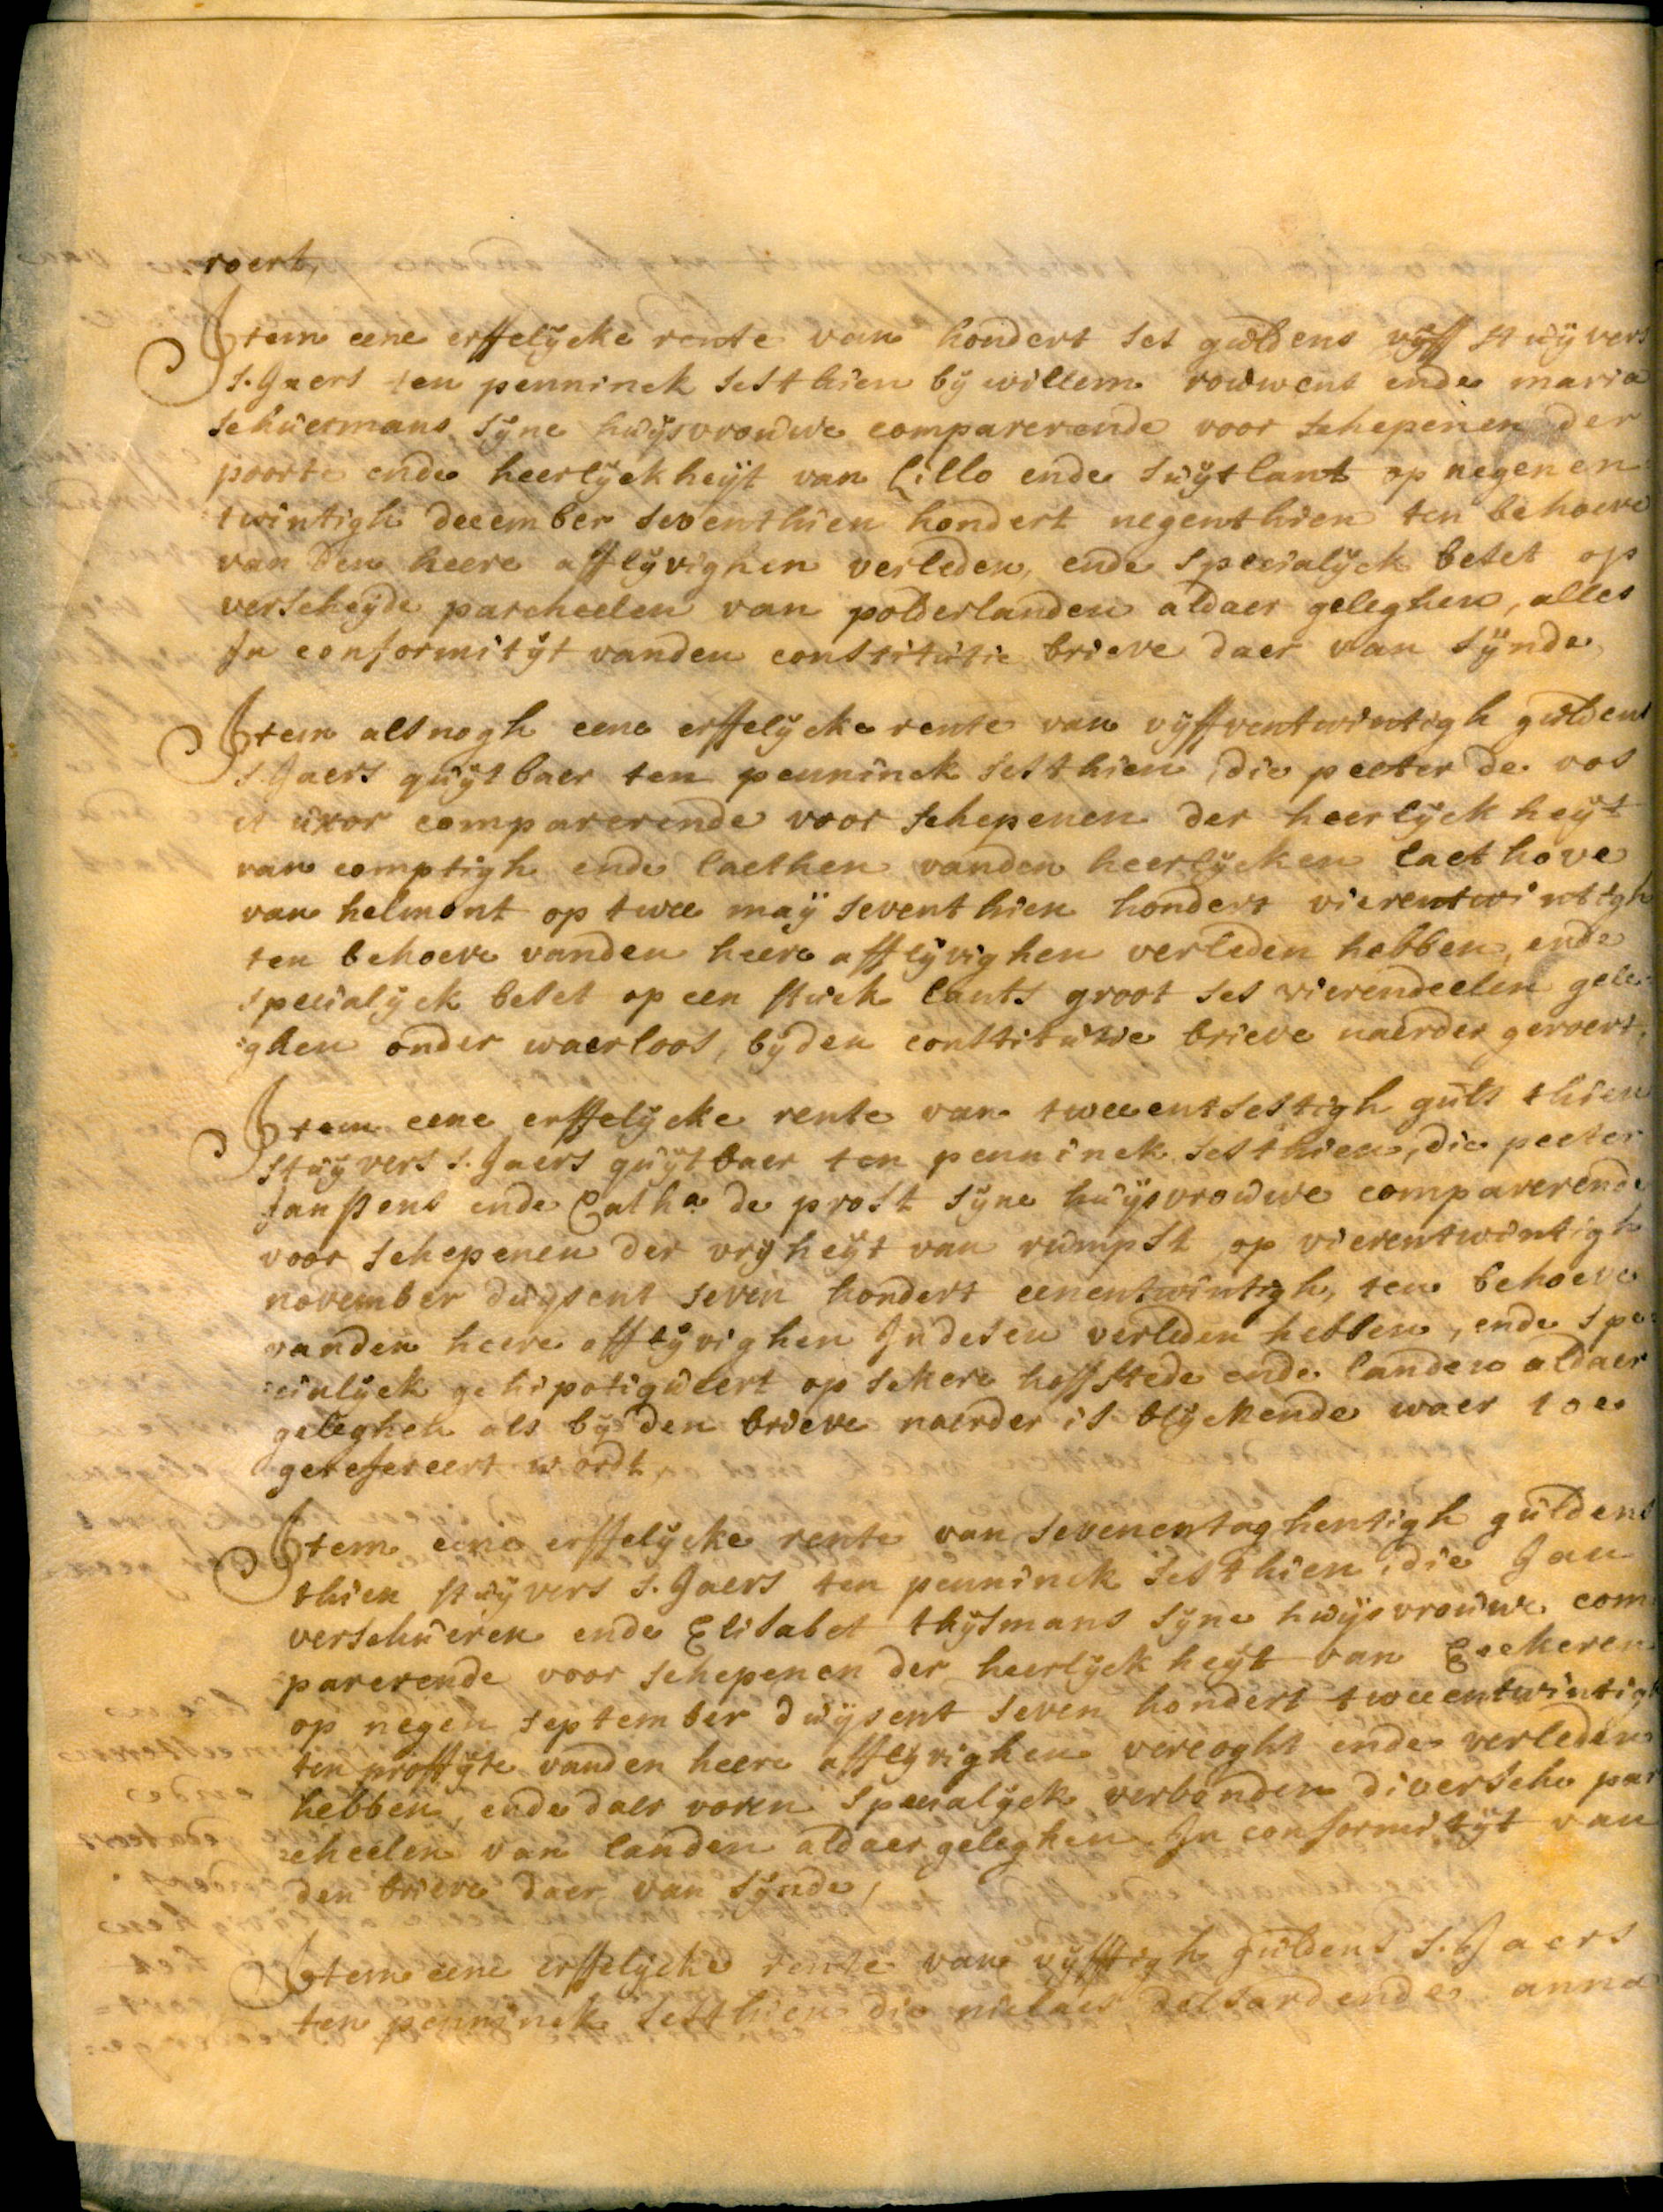 roert,
Item eene erffelycke rente van hondert ses guldens vyff stuyvers
s.Jaers ten penninck sesthien by willem rouwens ende maria
schuermans syne huysvrouwe comparerende voor schepenen der
poorte ende heerlyckheyt van Lillo ende suytlant op negenen
twintigh december seventhien hondert negenthien ten behoeve
van den heere afflyvighen verleden, ende specialyck beset op
verscheyde parcheelen van polderlanden aldaer geleghen, alles
In conformityt vanden constitutie brieve daer van synde,
Item alsnogh eene erffelycke rente van vyffventwintigh guldens
s.Jaers quytbaer ten penninck sesthien, die peeter de vos
et uxor comparerende voor schepenen der heerlyckheyt
van comptigh ende laethen vanden heerlycken laethove
van helmont op twee may seventhien hondert vierentwintigh
ten behoeve vanden heere afflyvighen verleden hebben, ende
specialyck beset op een stuck lants groot ses vierendeelen gele:
:ghen onder waerloos, by den constitutie brieve naerder geroert,
Item eene erffelycke rente van tweeentsestigh guls thien
stuyvers s.Jaers quytbaer ten penninck sesthien, die peeter
Janssens ende Catha de prost syne huysvrouwe comparerende
voor schepenen der vryheyt van rumpst op vierentwintigh
november duysent seven hondert eenentwintigh, ten behoeve
vanden heere afflyvighen Indesen verleden hebben, ende spe:
:cialyck gehipotiqueert op sekere hoffstede ende landen aldaer
geleghen als by den brieve naerder is blyckende waer toe
gerefereert wordt,
Item eene erffelycke rente van sevenentaghentigh guldens
thien stuyvers s.Jaers ten penninck sesthien, die Jan
verschueren ende Elisabet thysmans syne huysvrouwe com:
:parerende voor schepenen der heerlyckheyt van Eeckeren
op negen september duysent seven hondert tweeentwintigh
ten proffyte vanden heere afflyvighen vercoght ende verleden
hebben, ende daer voren specialyck verbonden diversche par
:cheelen van landen aldaer geleghen In conformityt van
den brieve daer van synde,
Item eene erffelycke rente van vyfftigh guldens s.Jaers
ten penninck sesthien die niclaes delsard ende anna